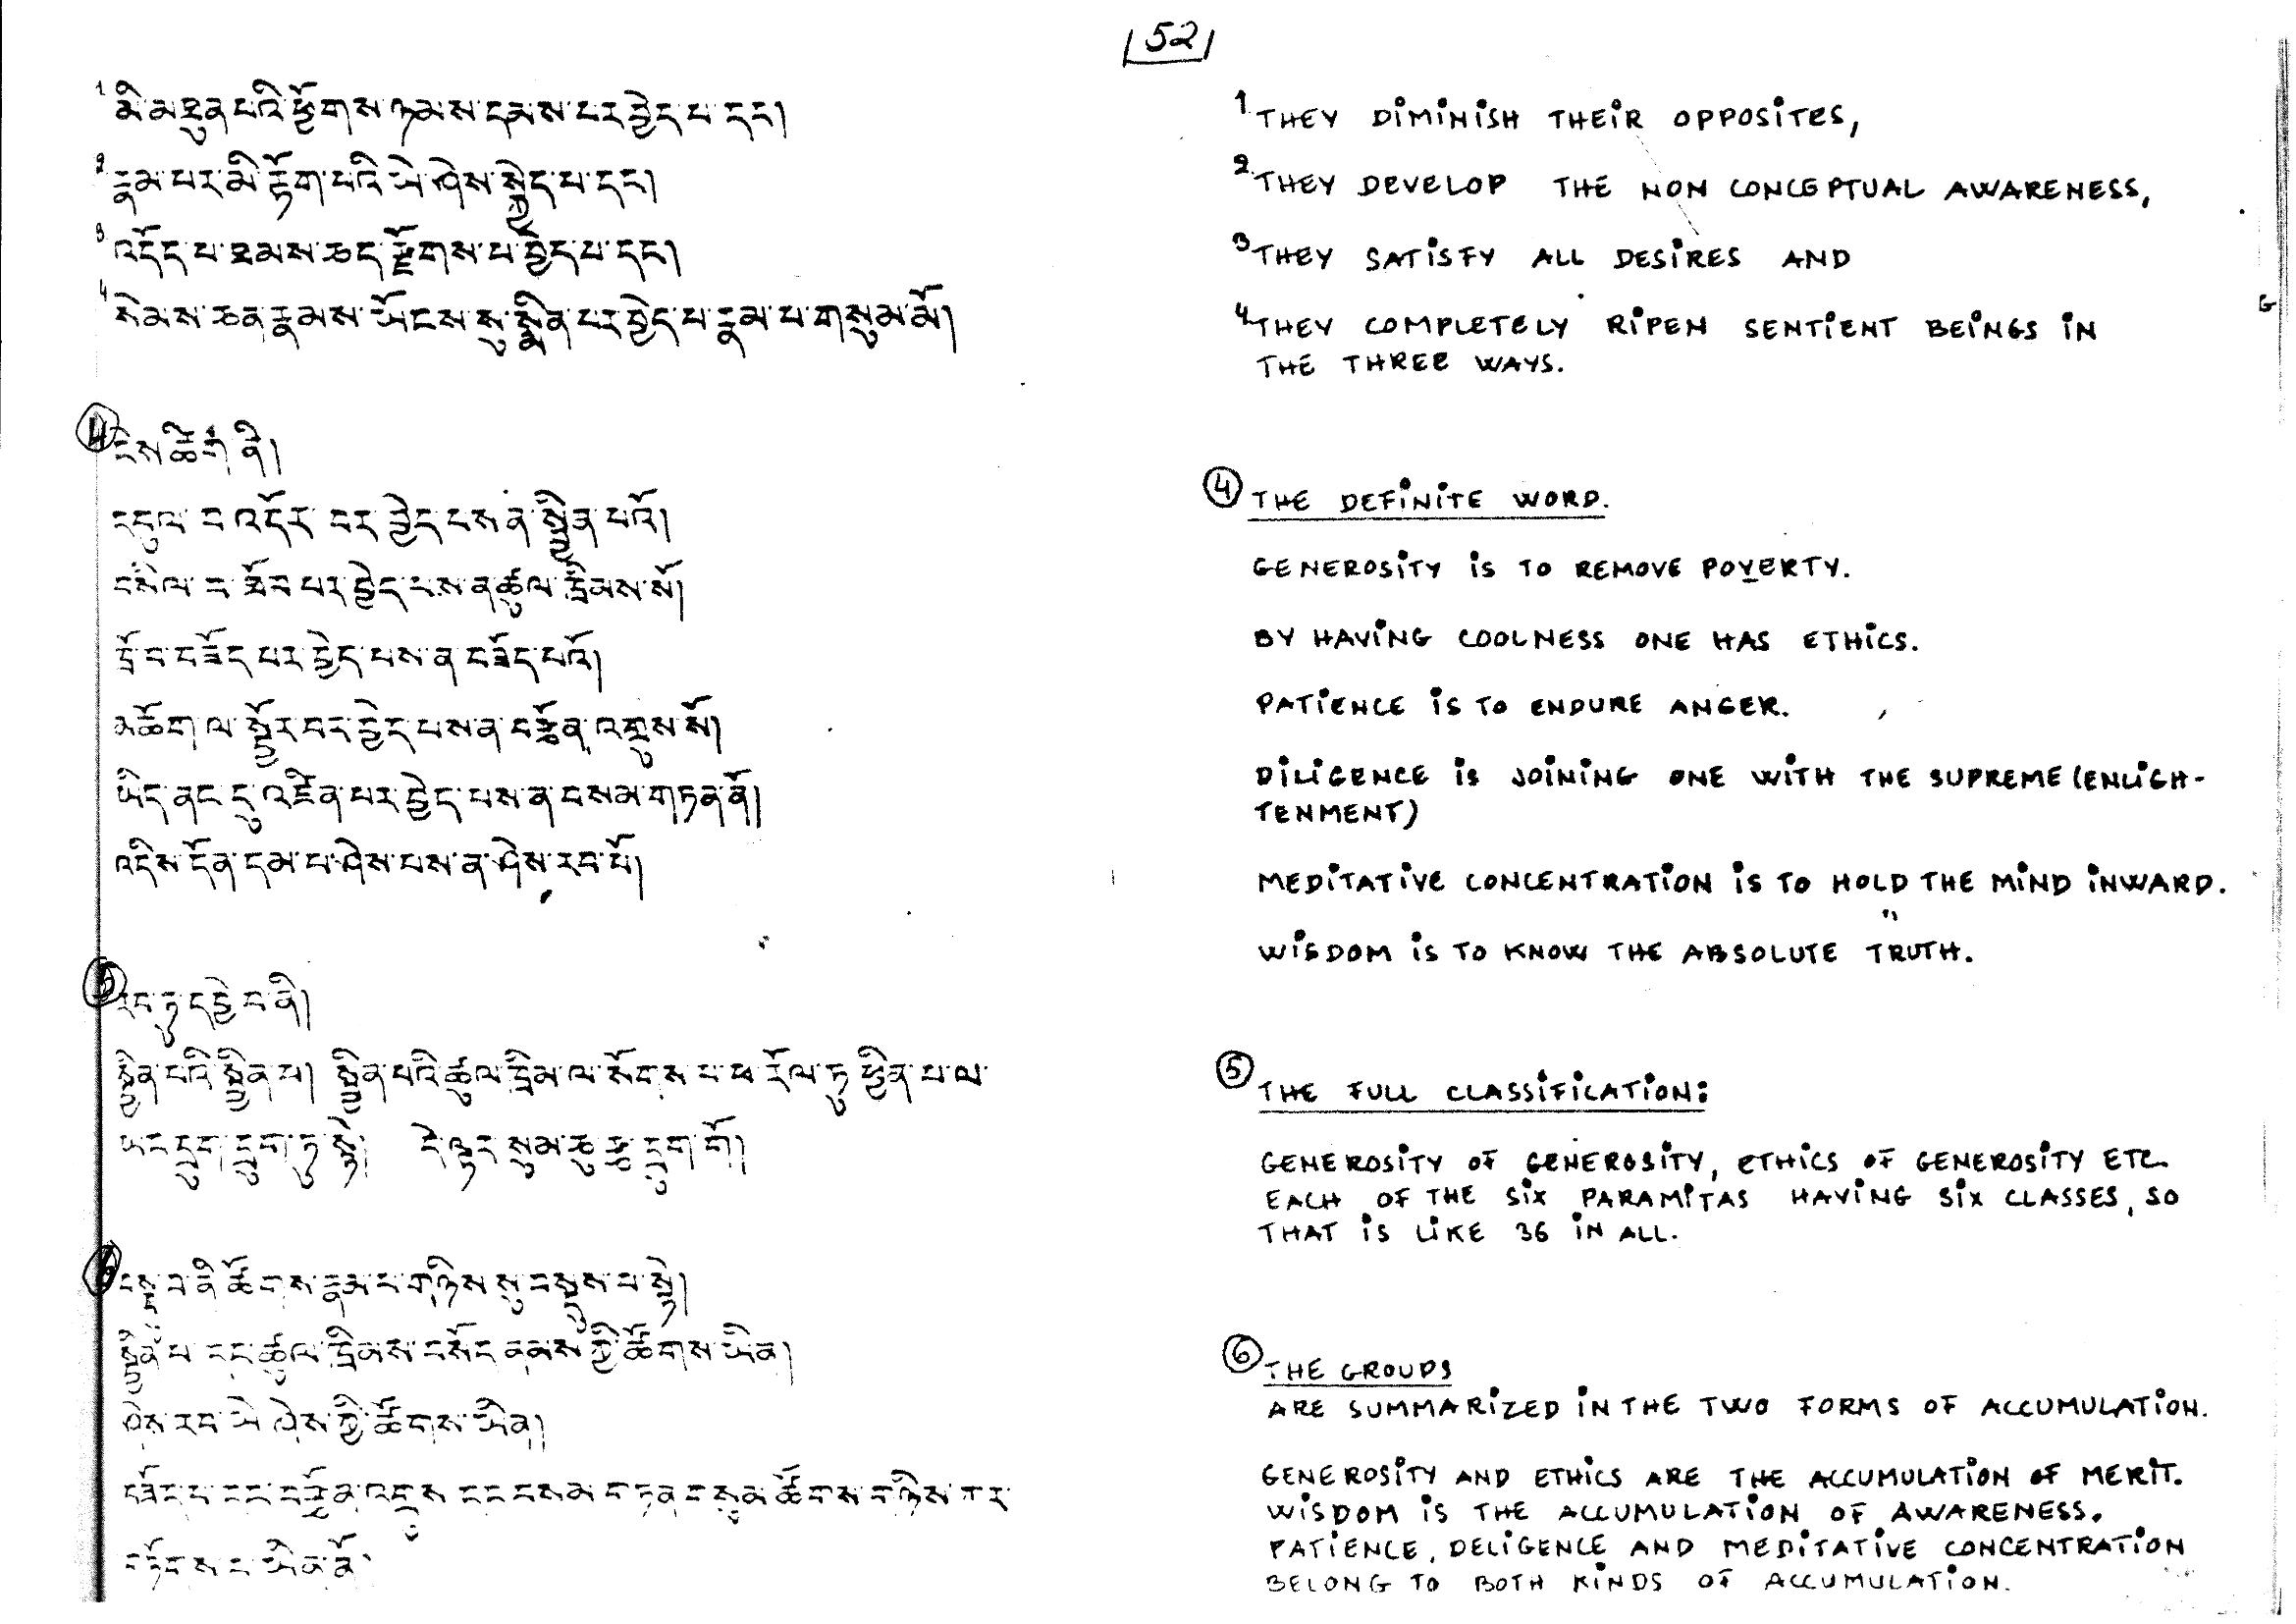 52
1 མི་མཐུན་པའི་ཕྱོགས་ཉམས་དམས་པར་བྱེད་པ་དང།
2 རྣམ་པར་མི་རྟོག་པའི་ཡེ་ཤེས་སྐྱེད་པ་དང།
3 འདོད་པ་ཐམས་ཅད་རྫོགས་པ་བྱེད་པ་དང།
4 སེམས་ཅན་རྣམས་ཡོངས་སུ་སྨིན་པར་བྱེད་པ་རྣམ་པ་གསུམ་མོ།
4 ངེས་ཚིག་ནི།
དབུལ་བ་འདོར་བར་བྱེད་པས་ན་སྦྱིན་པའོ།
བསིལ་བ་ཐོབ་པར་བྱེད་པས་ན་ཚུལ་ཁྲིམས་སོ།
ཁྲོ་བ་བཟོད་པར་བྱེད་པས་ན་བཟོད་པའོ།
མཆོག་ལ་སྦྱོར་བར་བྱེད་པས་ན་བརྩོན་འགྲུས་སོ།
ཡིད་ནང་དུ་འཛིན་པར་བྱེད་པས་ན་བསམ་གཏན་ནོ།
འདིས་དོན་དམ་པ་ཤེས་པས་ན་ཤེས་རབ་པོ།
5 རབ་ཏུ་དབྱེ་བ་ནི།
སྦྱིན་པའི་སྦྱིན་པ། སྦྱིན་པའི་ཚུལ་ཁྲིམ་ལ་སོགས་པ་ཕ་རོལ་ཏུ་ཕྱིན་པ་ལ་
ཡང་དྲུག་དྲུག་ཏུ་སྟེ། དེ་ལྟར་སུམ་ཅུ་རྩ་དྲུག་གོ།
6 བསྡུ་བ་ནི་ཚོགས་རྣམ་པ་གཉིས་སུ་བསྡུས་པ་སྟེ།
སྦྱིན་པ་དང་ཚུལ་ཁྲིམས་བསོད་ནམས་ཀྱི་ཚོགས་ཡིན།
ཤེས་རབ་ཡེ་ཤེས་ཀྱི་ཚོགས་ཡིན།
བཟོད་པ་དང་བརྩོན་འགྲུས་དང་བསམ་གཏན་གསུམ་ཚོགས་གཉིས་ཀར་
གཏོགས་པ་ཡིན་ནོ་
1 THEY DIMINISH THEIR OPPOSITES,
2 THEY DEVELOP THE NON CONCEPTUAL AWARENESS,
3 THEY SATISFY ALL DESIRES AND
4 THEY COMPLETELY RIPEN SENTIENT BEINGS IN
THE THREE WAYS.
4 THE DEFINITE WORD.
GENEROSITY IS TO REMOVE POVERTY.
BY HAVING COOLNESS ONE HAS ETHICS.
PATIENCE IS TO ENDURE ANGER.
DILIGENCE IS JOINING ONE WITH THE SUPREME (ENLIGH-
TENMENT)
MEDITATIVE CONCENTRATION IS TO HOLD THE MIND INWARD.
WISDOM IS TO KNOW THE ABSOLUTE TRUTH.
5 THE FULL CLASSIFICATION:
GENEROSITY OF GENEROSITY, ETHICS OF GENEROSITY ETC
EACH OF THE SIX PARAMITAS HAVING SIX CLASSES, SO
THAT IS LIKE 36 IN ALL.
6 THE GROUPS
ARE SUMMARIZED IN THE TWO FORMS OF ACCUMULATION.
GENEROSITY AND ETHICS ARE THE ACCUMULATION OF MERIT.
WISDOM IS THE ACCUMULATION OF AWARENESS.
PATIENCE, DELIGENCE AND MEDITATIVE CONCENTRATION
BELONG TO BOTH KINDS OF ACCUMULATION.